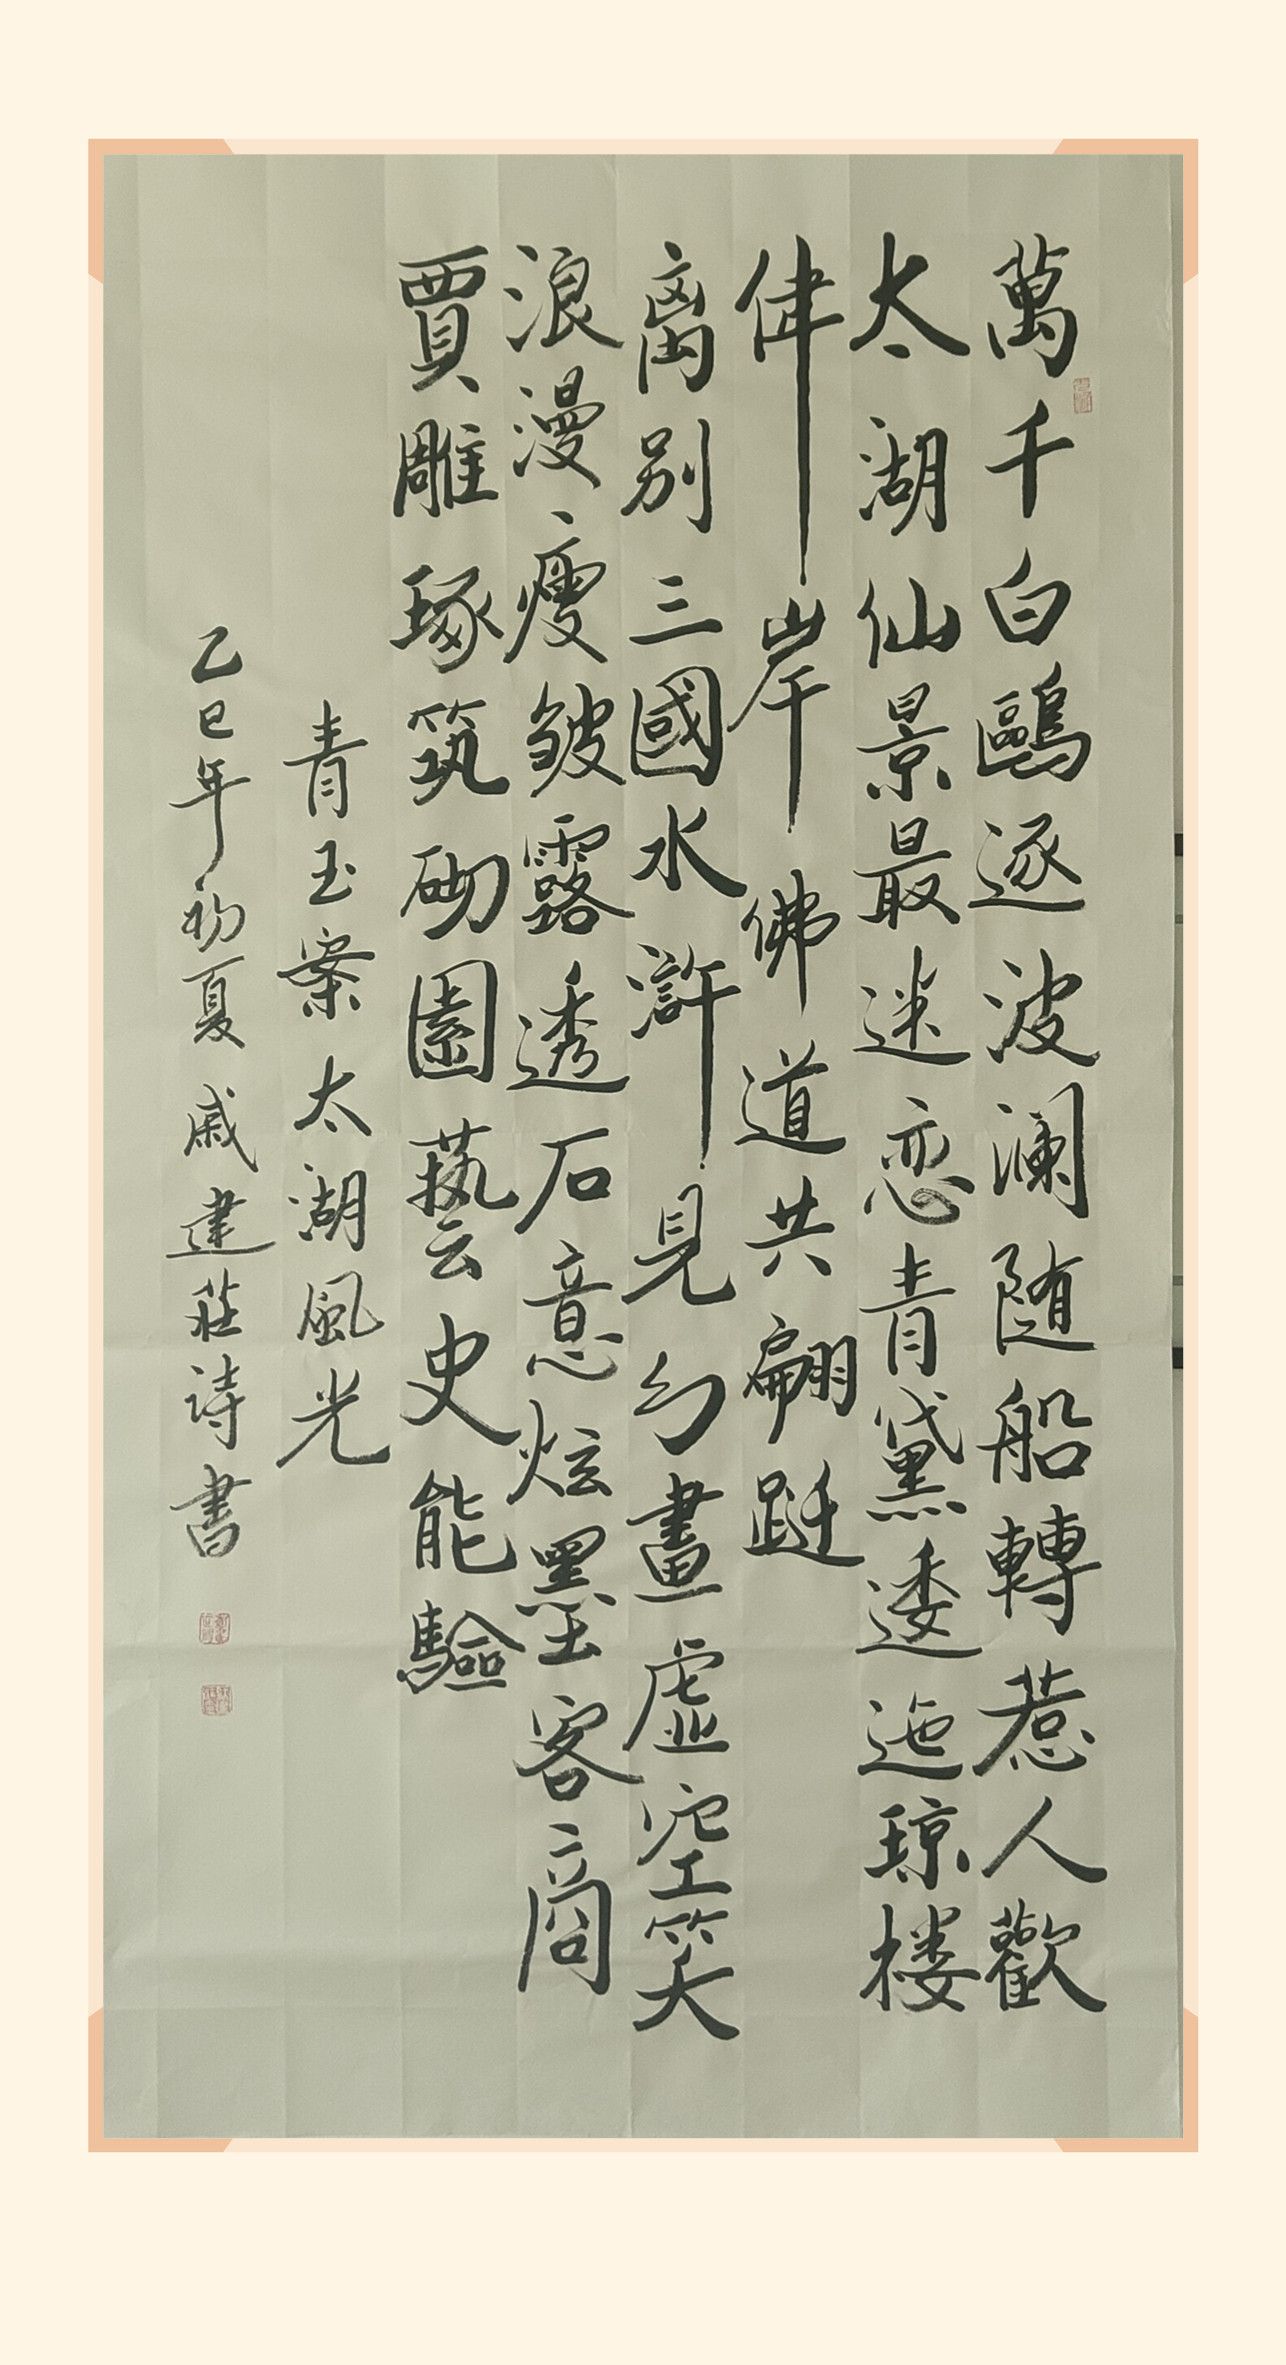 萬千白鷗逐波澜随船轉惹人歡
太湖仙景最迷恋青黛逶迤琼楼
伴岸佛道共翩跹
离别三國水滸見幻畫虛空笑
浪漫瘦皱露透石意炫墨客商
賈雕琢筑砌園藝史能驗
青玉案太湖風光
乙巳年初夏戚建莊诗書